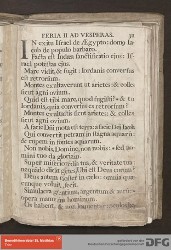 FERIA II AD VESPERAS.
IN exitu Israel de Ægypto: domus Ja-
cob de populo barbaro.
Facta est Iudæa sanctificatio ejus: Is-
rael potestas ejus.
Mare vidit, & fugit: Iordanis conversus
est retrorsum.
Montes exultaverunt ut arietes: & colles
sicut agni ovium.
Quid est tibi mare, quod fugisti? & tu
Iordanis, quia conversus es retrorsum?
Montes exultastis sicut arietes: & colles
sicut agni ovium.
A facie Dñi mota est terra: a facie Dei Iacob.
Qui convertit petram in stagna aquarum:
& rupem in fontes aquarum.
Non nobis, Domine, non nobis: sed no-
mini tuo da gloriam.
Super misericordia tua, & veritate tua:
nequando dicant gentes: Ubi est Deus eorum?
Deus autem noster in cælo: omnia quæ-
cunque voluit, fecit.
Simulacra gentium, argentum & aurum:
opera manuum hominum.
Os habent, & non